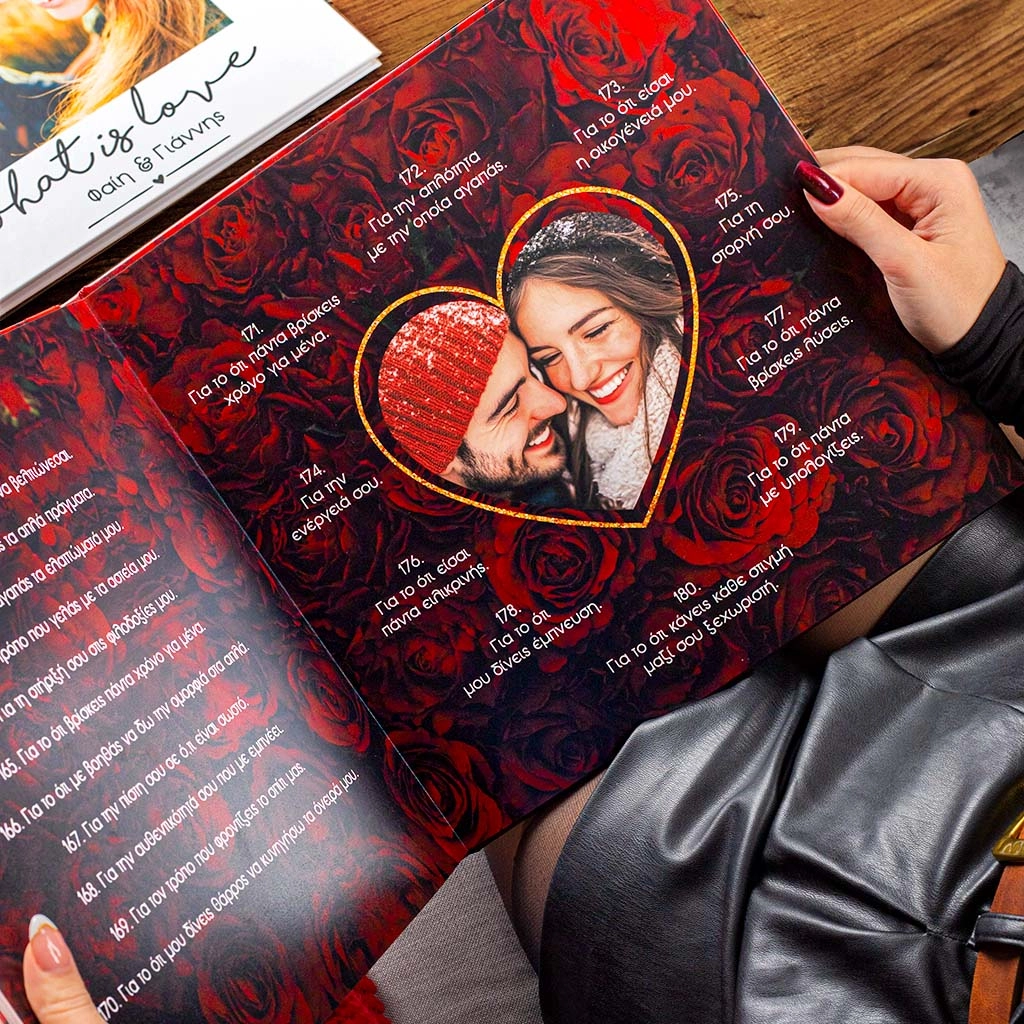 what is love
Φαίη & Γιάννης
να βελτιώνεσαι.
τα απλά πράγματα.
αγαπάς τα ελαττώματά μου.
τρόπο που γελάς με τα αστεία μου.
Για τη στήριξή σου στις φιλοδοξίες μου.
165. Για το ότι βρίσκεις πάντα χρόνο για μένα.
166. Για το ότι με βοηθάς να δω την ομορφιά στα απλά.
167. Για την πίστη σου σε ό,τι είναι σωστό.
168. Για την αυθεντικότητά σου που με εμπνέει.
169. Για τον τρόπο που φροντίζεις το σπίτι μας.
170. Για το ότι μου δίνεις θάρρος να κυνηγήσω τα όνειρά μου.
171.
Για το ότι πάντα βρίσκεις
χρόνο για μένα.
172.
Για την απλότητα
με την οποία αγαπάς.
173.
Για το ότι είσαι
η οικογένειά μου.
174.
Για την
ενέργειά σου.
175.
Για τη
στοργή σου.
176.
Για το ότι είσαι
πάντα ειλικρινής.
177.
Για το ότι πάντα
βρίσκεις λύσεις.
178.
Για το ότι
μου δίνεις έμπνευση.
179.
Για το ότι πάντα
με υπολογίζεις.
180.
Για το ότι κάνεις κάθε στιγμή
μαζί σου ξεχωριστή.